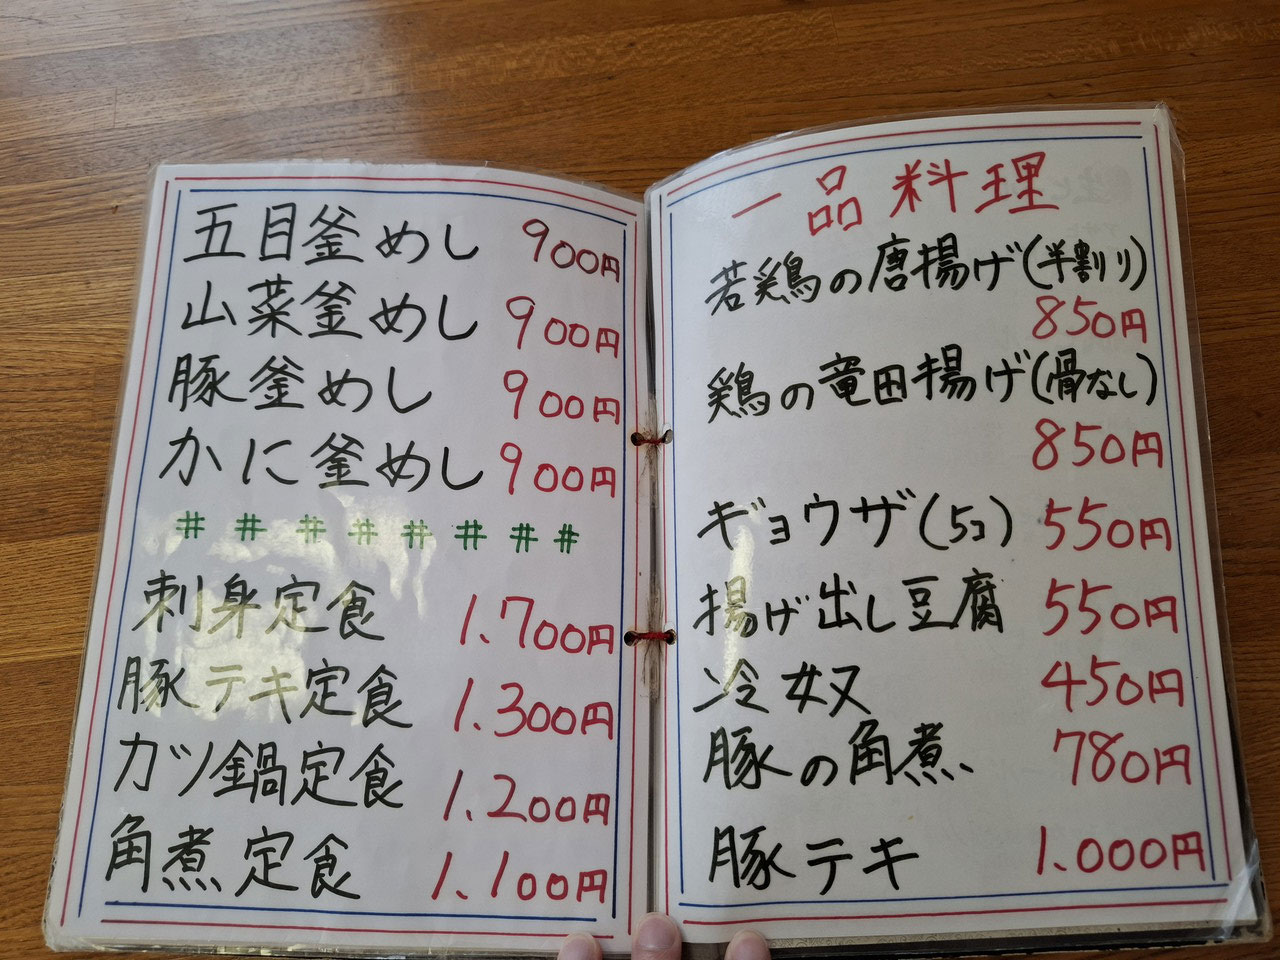 五目釜めし 900円
山菜釜めし 900円
豚釜めし 900円
かに釜めし 900円
# # # # # # # #
刺身定食 1.700円
豚テキ定食 1.300円
カツ鍋定食 1.200円
角煮定食 1.100円
一品料理
若鶏の唐揚げ(半割り)
850円
鶏の竜田揚げ(骨なし)
850円
ギョウザ(5コ) 550円
揚げ出し豆腐 550円
冷奴 450円
豚の角煮 780円
豚テキ 1.000円